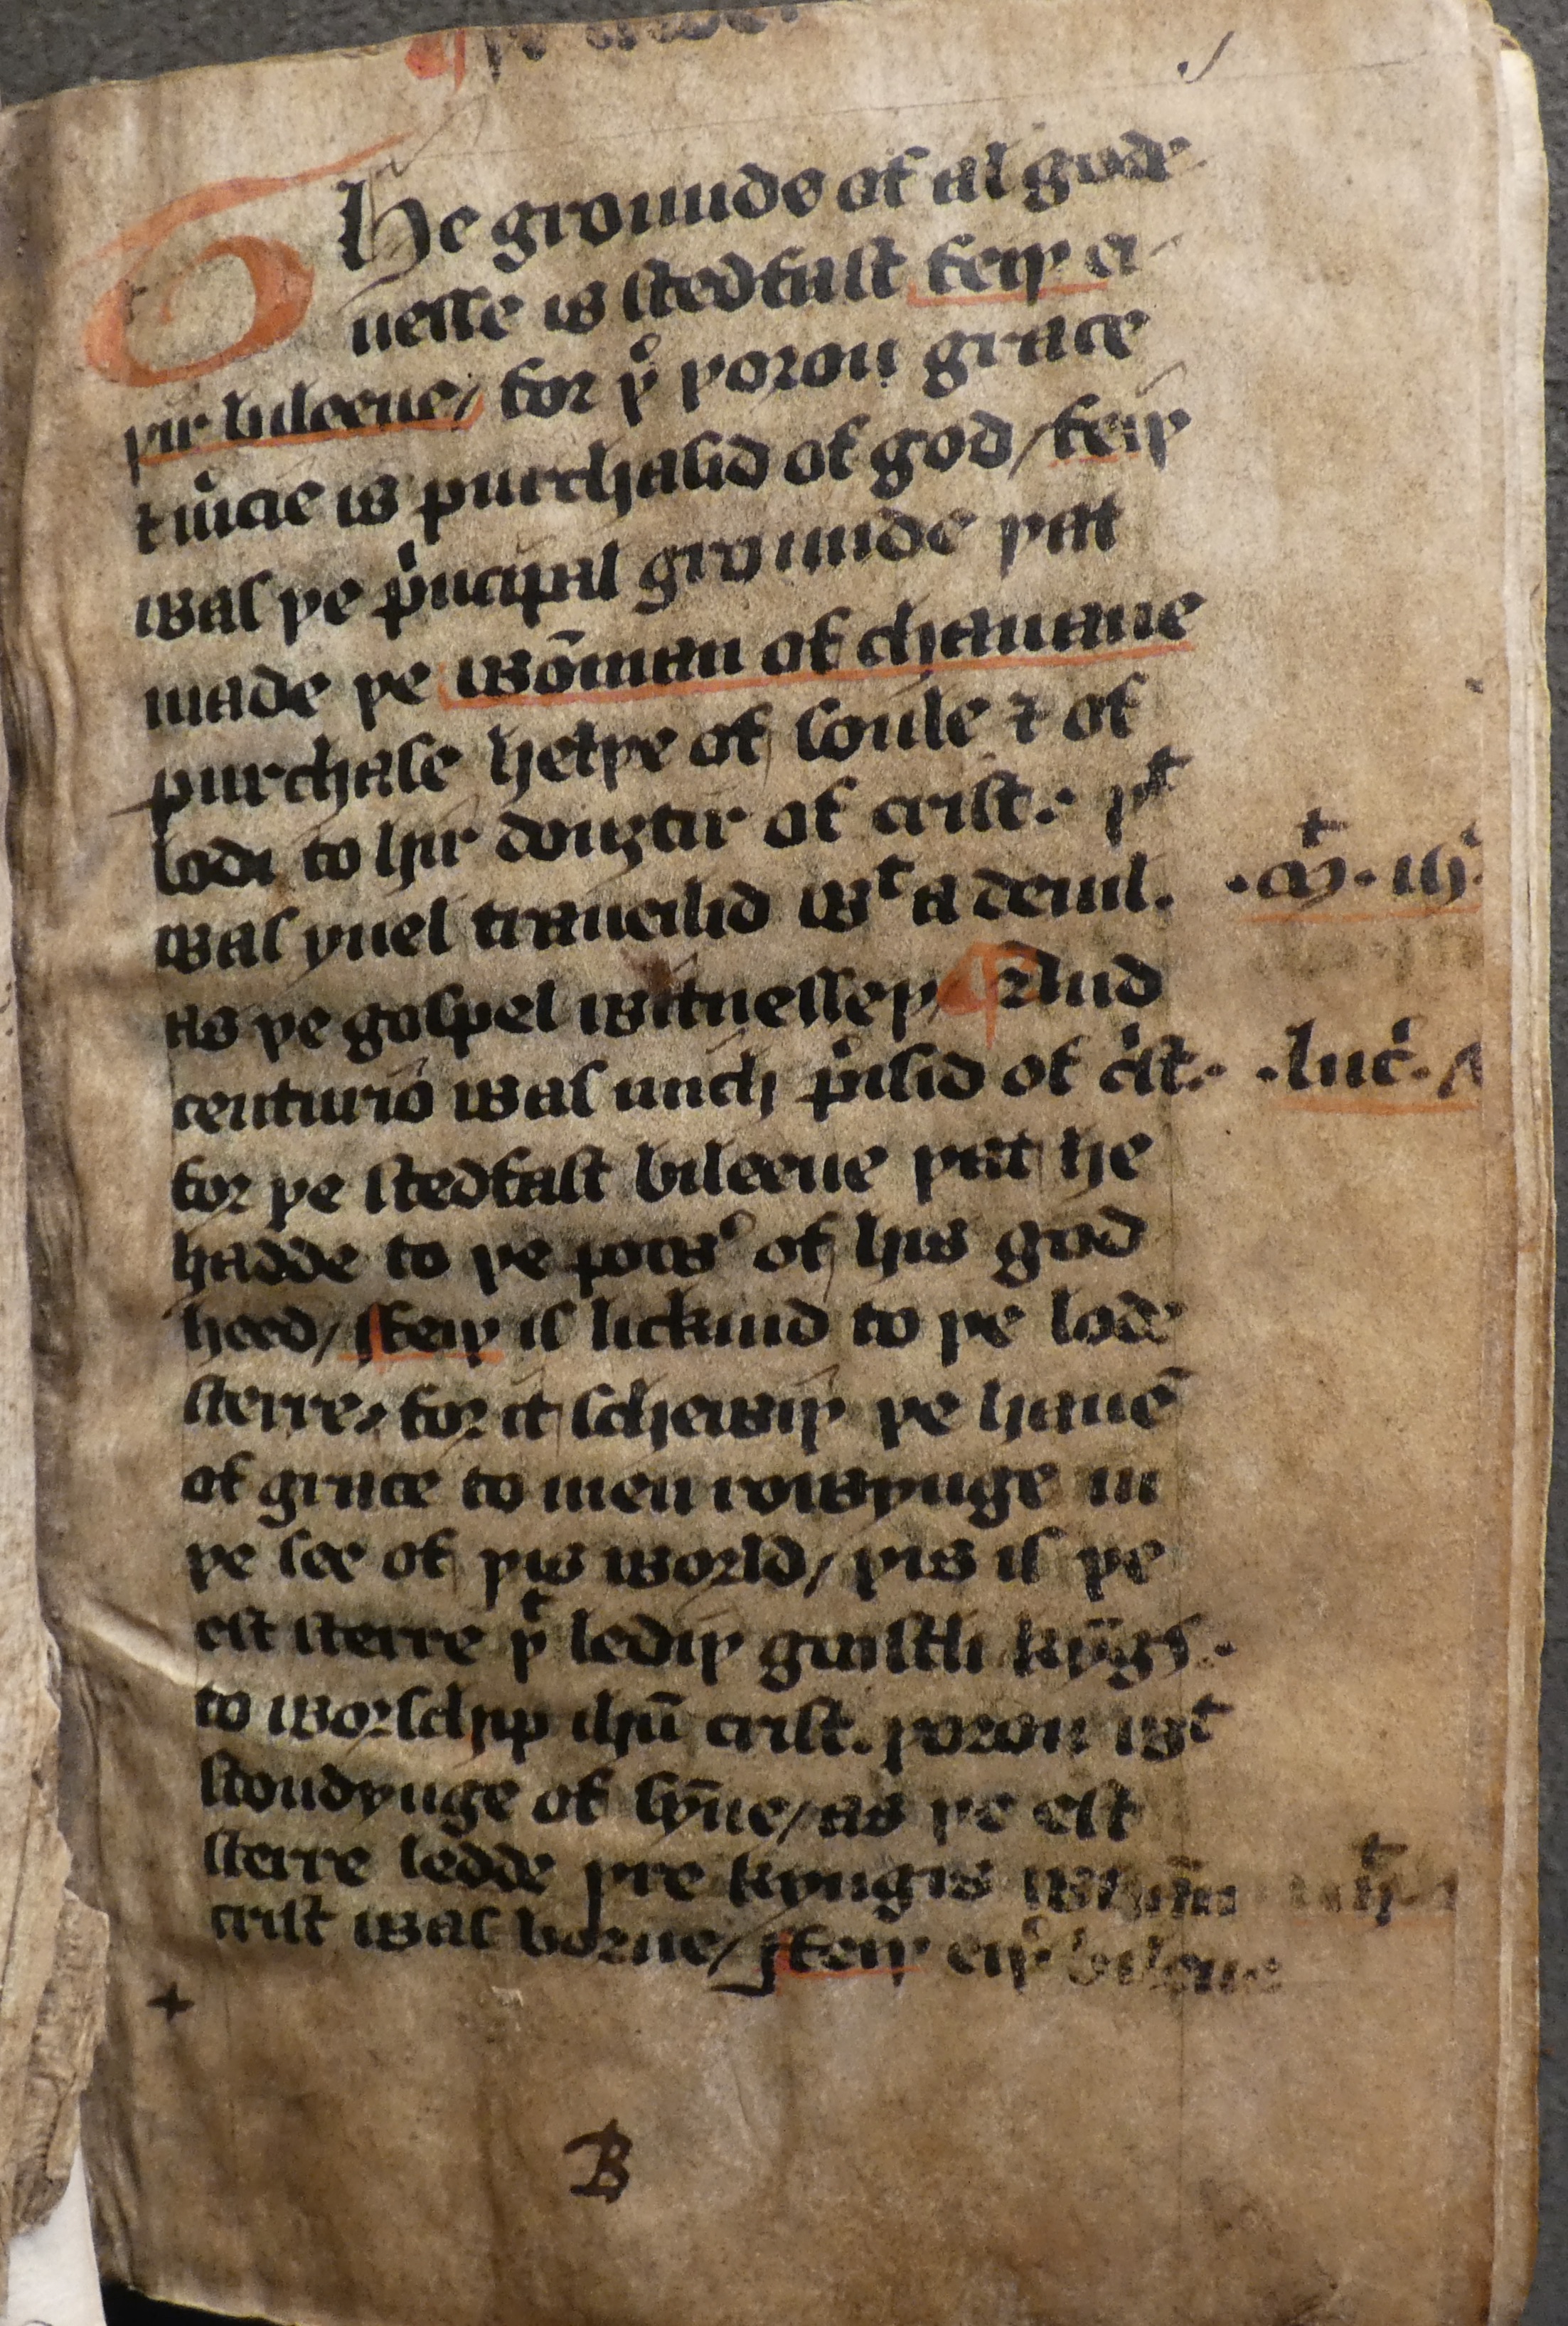 The grounde of al gode
nesse is stedfast feiþ ei
þir bileeue/ for þͦ þoron grace
⁊ mͥcie is purchasid of god/ feiþ
was þe pͥncipal grounde þat
made þe wōman of chanane
purchase helþe of soule ⁊ of
bodi to hir douȝtir of crist. þᵗ
was yuel traueilid wᵗ a deuil. .mᵗ.
as þe gospel witnesseþ/ ¶ And
centurio was mich pͥisid of cͥst. .luc.
for þe stedfast bileeue þat he
hadde to þe powꝰ of his god
heed/ feiþ is lickind to þe lode
sterre, for it schewiþ þe hauē
of grace to men rowynge in
þe see of þis world/ þis is þe
est sterre þᵗ lediþ goostli kyngs.
to worschip ihū crist. þoron wᵗ
stondynge of synne/ as þe est
sterre ledde þre kyngis
crist was borne/ feiþ eiþͬ bileue
B